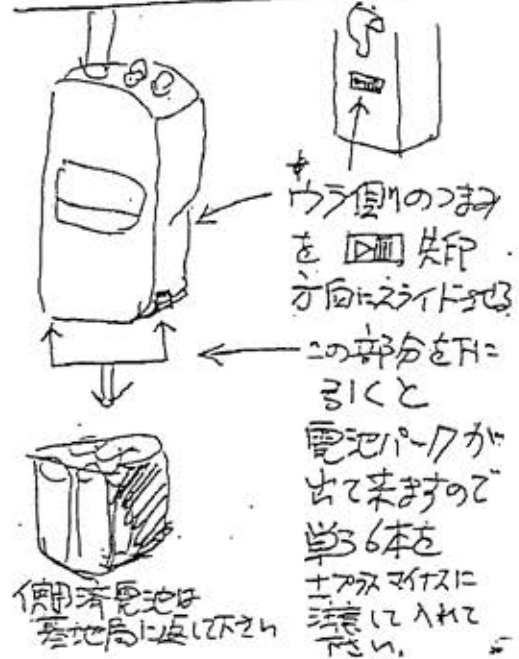 ウラ側のつまみ
を ▷||| 矢印
方向にスライドさせる
この部分を下に
引くと
電池パークが
出て来ますので
単3 6本を
+プラス マイナスに
注意して入れて
下さい。
済電池は
基地局に返して下さい